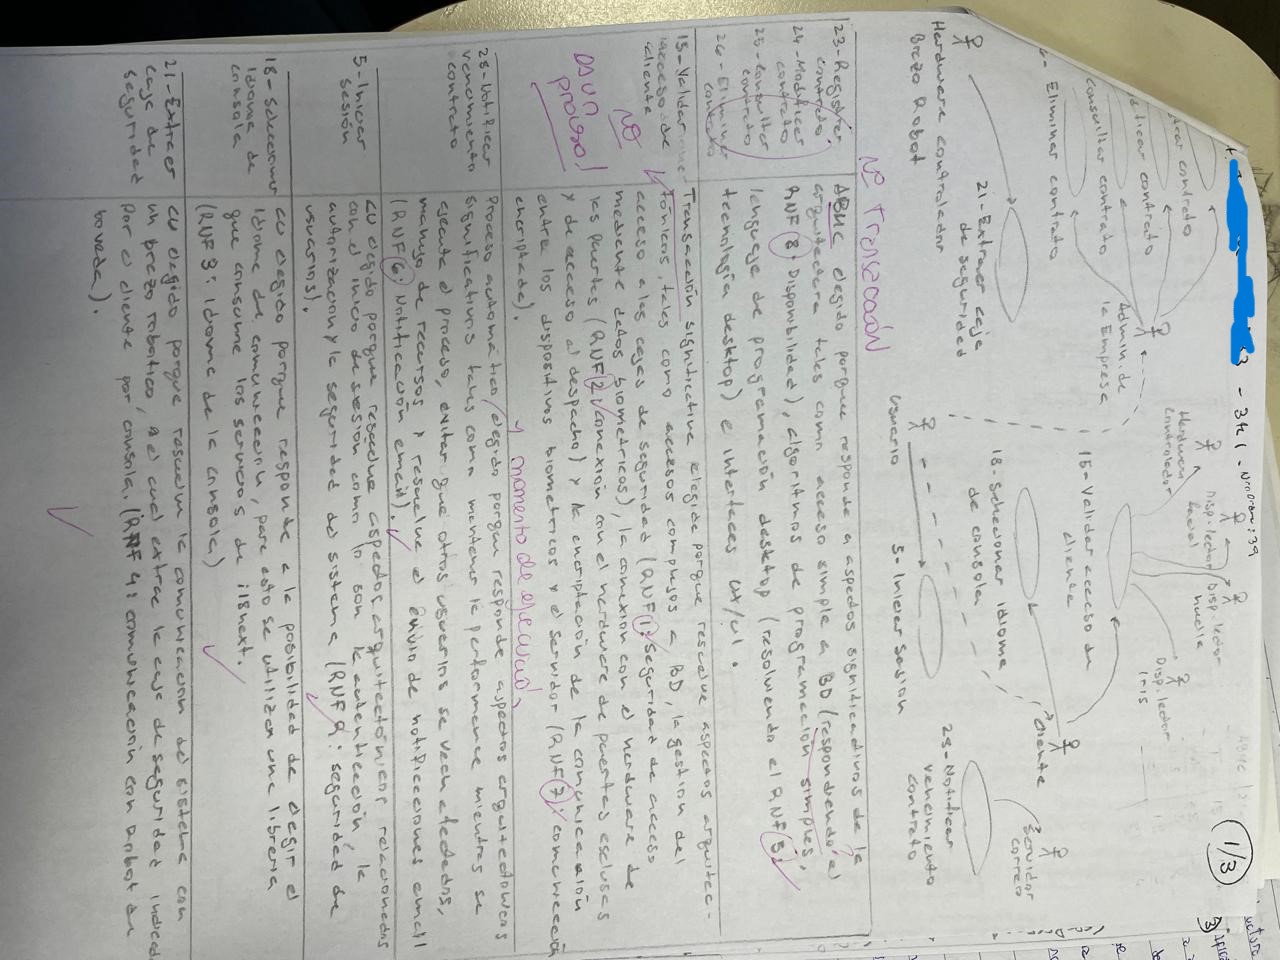 - 3K1 - Nro orden: 39
1/3
ABMC
Consultar contrato
Eliminar contrato
Admin de
la Empresa
Hardware
controlador
Disp. lector
facial
Disp. lector
huella
Disp. lector
iris
15- Validar acceso de
cliente
Cliente
Servidor
correo
21- Extraer caja
de seguridad
Hardware controlador
Brazo Robot
18- Seleccionar idioma
de consola
28- Notificar
vencimiento
contrato
Usuario
5- Iniciar sesión
Nº Transacción
23- Registrar
contrato
24- Modificar
contrato
25- Consultar
contrato
26- Eliminar
contrato
ABMC elegido porque responde a aspectos significativos de la
arquitectura tales como acceso simple a BD (respondiendo el
RNF 8: Disponibilidad), algoritmos de programación simples,
lenguaje de programación desktop (resolviendo el RNF 5:
tecnología desktop) e interfaces ux/ui.
15- Validar
acceso de
cliente
NO
Transacción significativa elegida porque resuelve aspectos arquitec-
tónicos, tales como accesos complejos a BD, la gestión del
acceso a las cajas de seguridad (RNF 1: Seguridad de acceso
mediante datos biométricos), la conexión con el hardware de
las puertas (RNF 2: conexión con el hardware de puertas esclusas
y de acceso al despacho) y la encriptación de la comunicación
entre los dispositivos biometricos y el servidor (RNF 7: comunicación
encriptada).
es un
proceso!
y momento de ejecución
28- Notificar
vencimiento
contrato
Proceso automático elegido porque responde aspectos arquitectónicos
significativos tales como mantener la performance mientras se
ejecuta el proceso, evitar que otros usuarios se vean afectados,
manejo de recursos y resuelve el envío de notificaciones email
(RNF 6: Notificación email).
5- Iniciar
sesión
CU elegido porque resuelve aspectos arquitectónicos relacionados
con el inicio de sesión como lo son la autenticación, la
autorización y la seguridad del sistema (RNF 9: seguridad de
usuarios).
18- Seleccionar
Idioma de
consola
CU elegido porque responde a la posibilidad de elegir el
idioma de comunicación, para esto se utiliza una librería
que consume los servicios de i18next.
(RNF 3: Idioma de la consola)
21- Extraer
caja de
seguridad
CU elegido porque resuelve la comunicación del sistema con
un brazo robotico, el cual extrae la caja de seguridad indicada
por el cliente por consola. (RNF 4: comunicación con robot de
boveda).